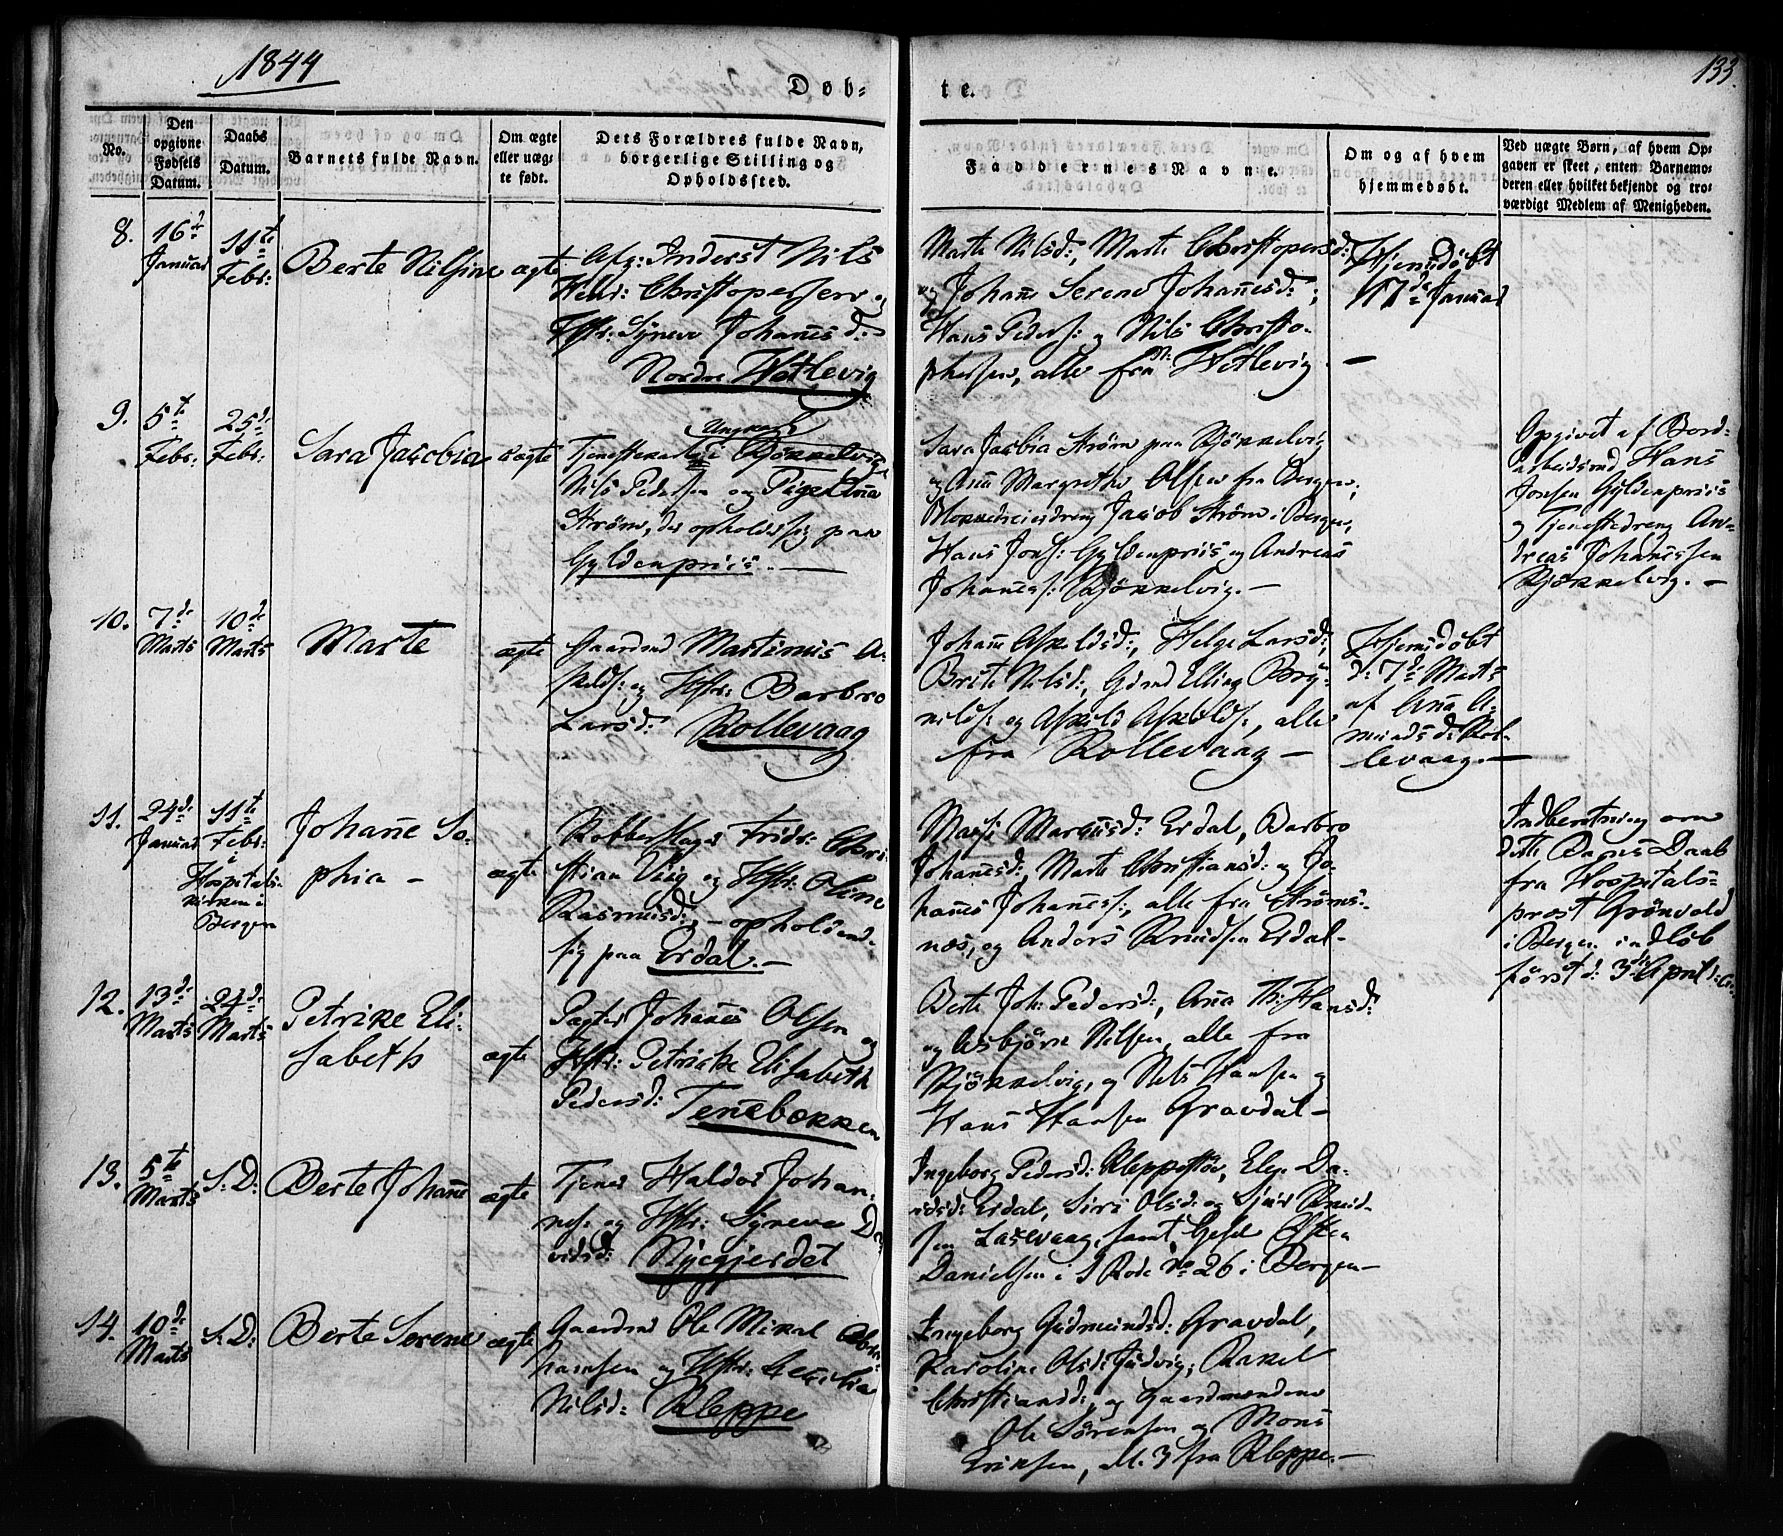 1844
133.
Døb-
te.
No.
Den
opgivne
Fødsels
Datum.
Daabs
Datum.
Barnets fulde Navn.
Om ægte
eller uæg-
te født.
Dets Forældres fulde Navn,
borgerlige Stilling og
Opholdssted.
Faddernes Navne.
Om og af hvem
hjemmedøbt.
Ved uægte Børn, af hvem Op-
gaven er skeet, enten Barnemo-
deren eller hvilket bekjendt og tro-
værdigt Medlem af Menigheden.
8.
16de
Januar
11te
Febr:
Berte Nilsine
ægte
Nils
Henr: Christophersen og
Hstr: Syneve Johannesd:
Nordre Hetlevig
Marte Nilsd:, Marte Christophersd:
og Johanne Serene Johannesd:;
Hans Peders: og Nils Christo-
phersen, alle fra N: Hetlevig.
Hjemdøbt
17de Januar
—
9.
5te
Febr:
25de
Febr:
Sara Jacobia
uægte
Ungkarl
Tjenestekarl i Bjökkelvig
Nils Pedersen og Pige Anna
Ström, der opholder sig paa
Gyldenpriis. —
Sara Jacobia Ström paa Bjökkelvig
og Ana Margrethe Olsen fra Bergen;
Blokkedreierdreng Jacob Ström i Bergen,
Hans Jons: Gyldenpriis og Andreas
Johaness: Bjökkelvig. —
Opgivet af Bord-
arbeidsmd Hans
Jonsen Gyldenpriis
og Tjenestedreng An-
dreas Johanessen
Bjökkelvig. —
10.
7de
Marts
10de
Marts
Marte
ægte
Gaardmd Martinus A-
skilds: og Hstr: Barbro
Larsd: Kollevaag
Johane Askildsd:, Helge Larsd:,
Brite Nilsd:, Gdmd Elling Bry-
nilds: og Askild Askilds:, alle
fra Kollevaag —
Hjemdöbt
d: 7de Marts
af Ana A-
mundsd: Kol-
levaag. —
11.
24de
Januar
11te
Febr:
i
Hospitals-
kirken i
Bergen
Johane So-
phia —
ægte
Kobberslager Fridr: Chri-
stian Viig og Hstr: Oline
Rasmusd:, — opholdend.
sig paa Erdal. —
Magnusd: Erdal, Barbro
Johanesd:, Marte Christiansd: og Jo-
hanes Johaness:, alle fra Ströms-
næs, og Anders Knudsen Erdal —
Indberetning om
dette Barns Daab
fra Hospitals-
præst Grönvold
i Bergen indløb
først d: 3die April d: A:
12.
13de
Marts
24de
Marts
Petrike Eli-
sabeth
ægte
Pagter Johanes Olsen og
Hstr: Petricke Elisabeth
Pedersd: Tenebekken
Berte Joh: Pedersd:, Ana Th: Hansd:
og Asbjörn Nilsen, alle fra
Bjökkelvig, og Nils Hansen og
Hans Hansen Gravdal —
13.
5te
Marts
S: D:
Berte Johane
ægte
Tjener Haldor Johan-
nes: og Hstr: Syneve Da-
vidsd: Nygjerdet
Ingeborg Pedersd: Kleppestöe, Elen Da-
vidsd: Erdal, Siri Olsd: og Sjur Knud-
sen Laxevaag, samt Gesel Osten
Danielsen i 5 Rode No 26 i Bergen —
14.
10de
Marts
S: D:
Berte Serene
ægte
Gaardmd Ole Mikal Abra-
hamsen og Hstr: Cecilia
Nilsd: Kleppe
Ingeborg Gudmundsd: Gravdal,
Karoline Olsd: Judvig, Rakel
Christiansd: og Gaardmændene
Ole Sörensen og Mons
Eriksen, all. 3 fra Kleppe. —